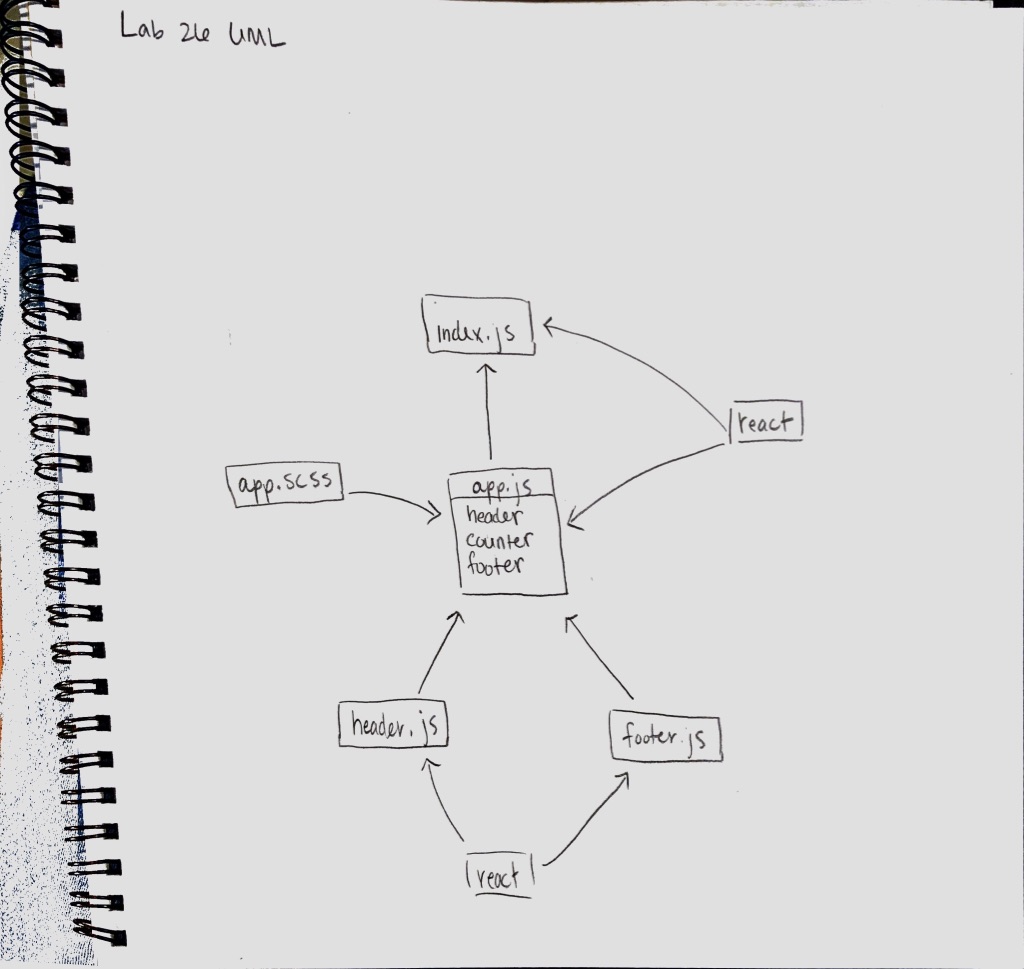 Lab 26 UML
index.js
react
app.scss
app.js
header
counter
footer
header.js
footer.js
react